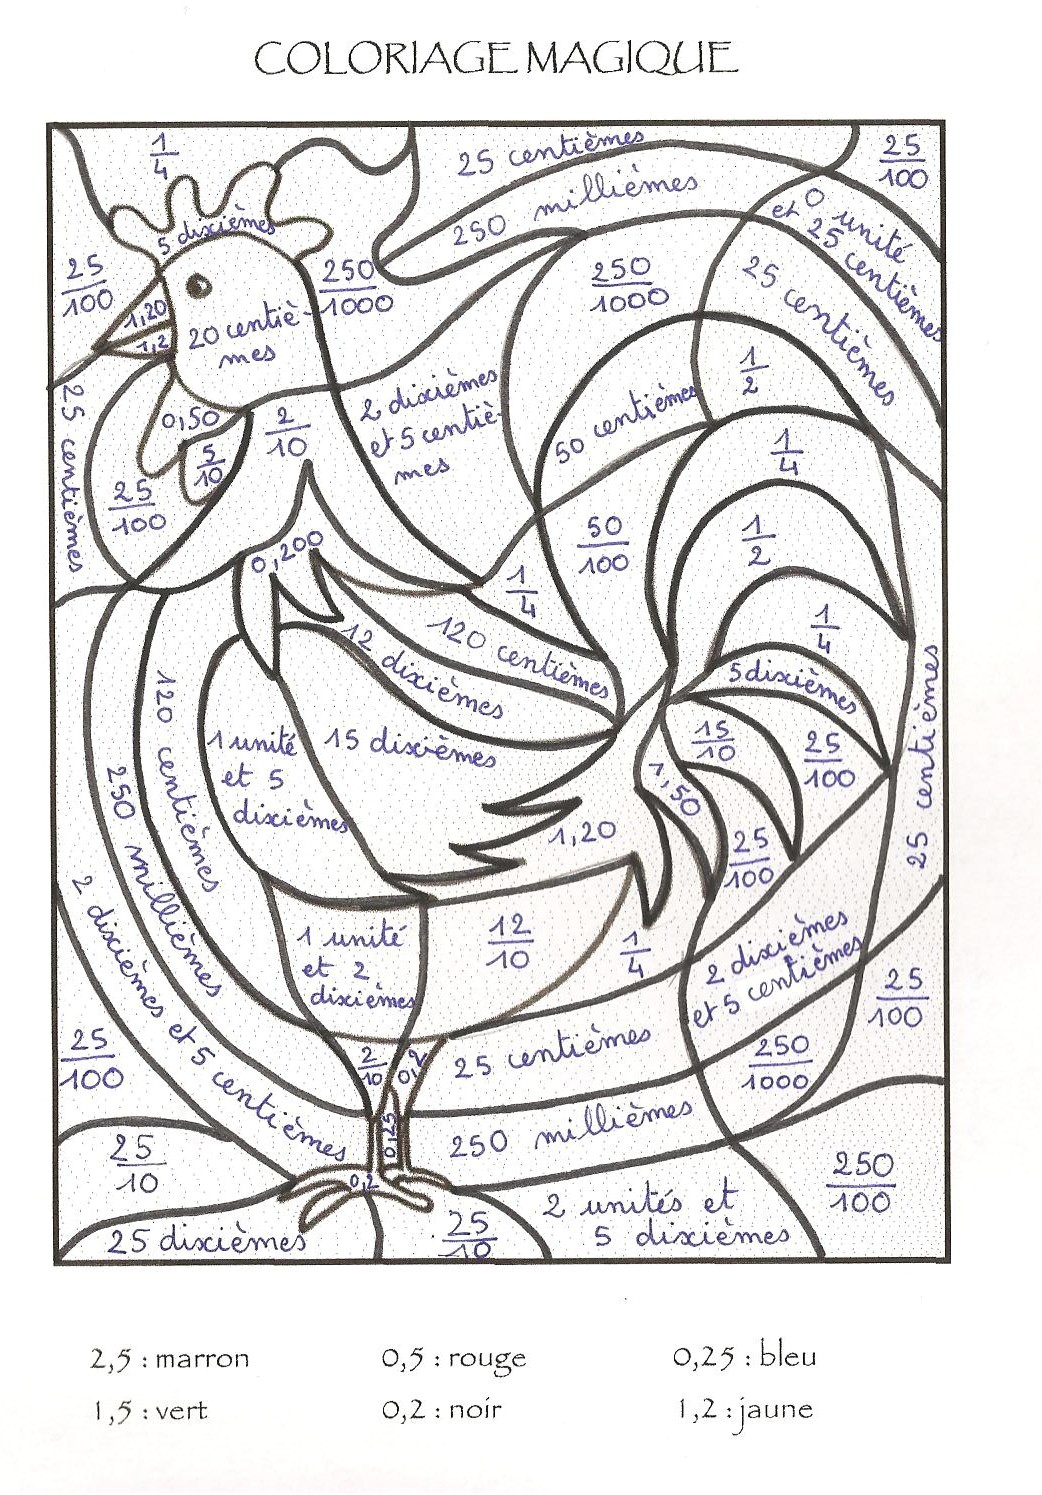 COLORIAGE MAGIQUE
1/4
25 centièmes
25/100
250 millièmes
0 unité
et 25
centièmes
5 dixièmes
25/100
250/1000
250/1000
25 centièmes
1,20
1,2
20 centiè-
mes
1/2
2 dixièmes
et 5 centiè-
mes
50 centièmes
25 centièmes
0,50
2/10
5/10
1/4
25/100
50/100
1/2
0,200
1/4
1/4
12 dixièmes
120 centièmes
5 dixièmes
120 centièmes
1 unité
et 5
dixièmes
15 dixièmes
15/10
25/100
25 centièmes
1,50
250 millièmes
1,20
25/100
2 dixièmes et 5 centièmes
1 unité
et 2
dixièmes
12/10
1/4
2 dixièmes
et 5 centièmes
25/100
25/100
2/10
0,2
25 centièmes
250/1000
0,25
250 millièmes
25/10
0,2
250/100
25 dixièmes
25/10
2 unités et
5 dixièmes
2,5 : marron
0,5 : rouge
0,25 : bleu
1,5 : vert
0,2 : noir
1,2 : jaune